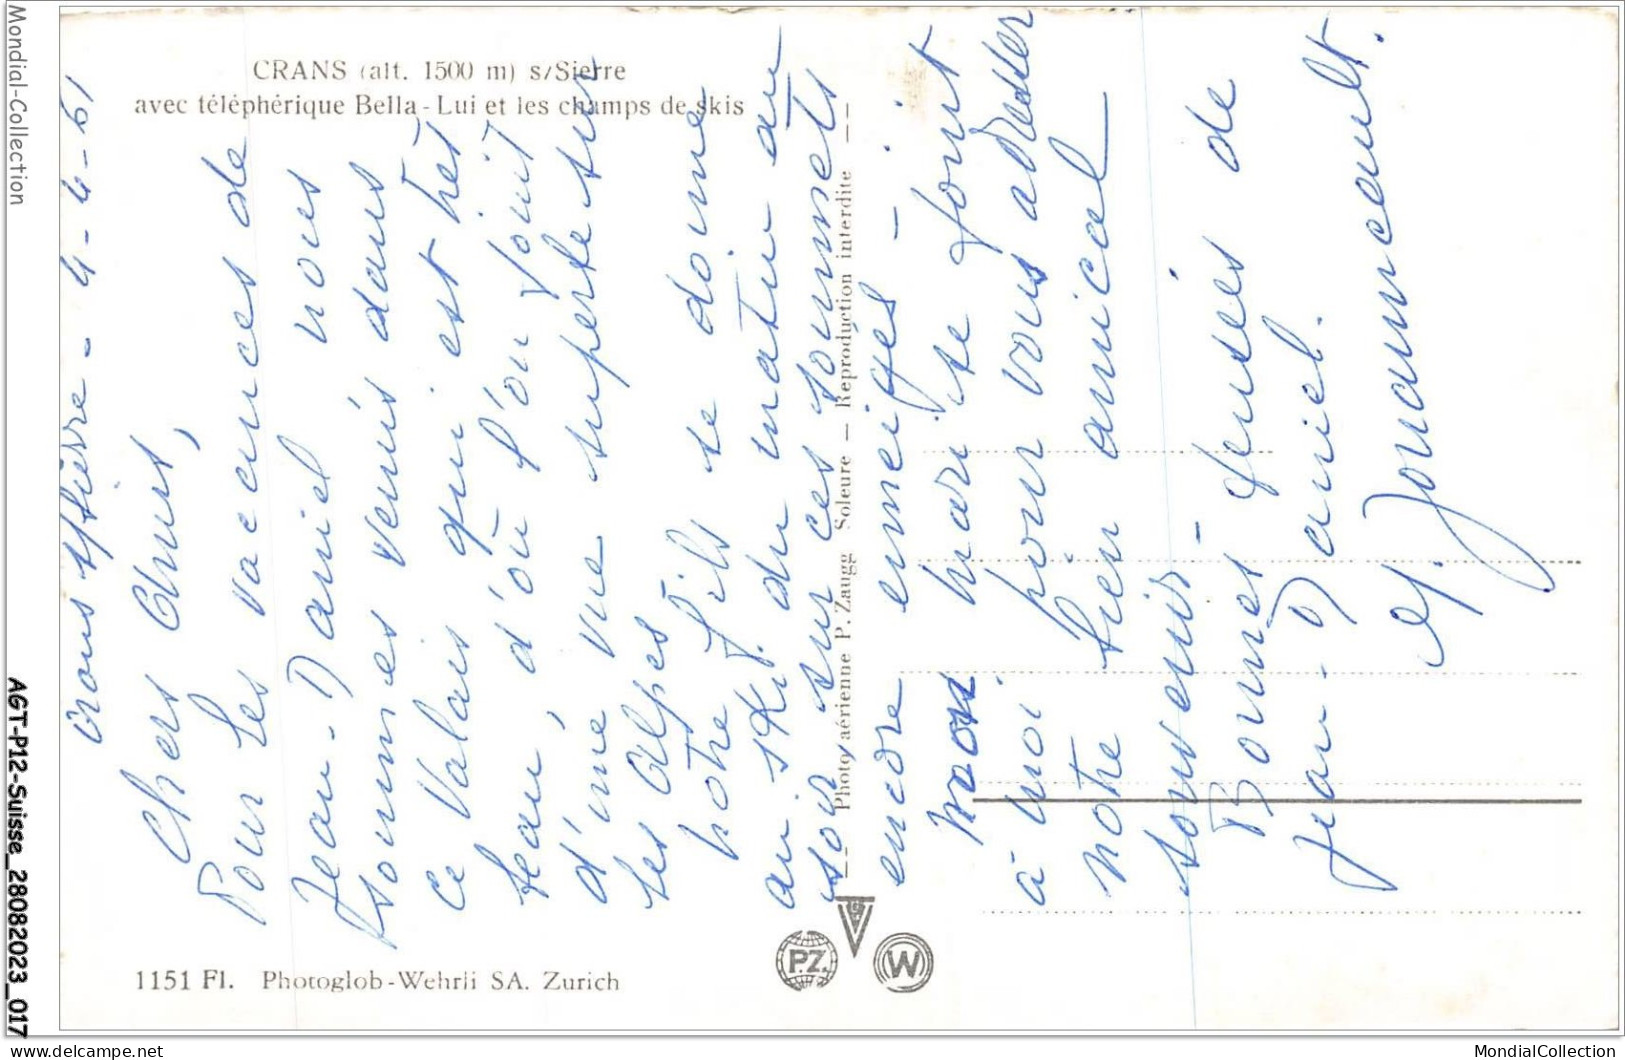 CRANS (alt. 1500 m) s/Sierre
avec téléphérique Bella-Lui et les champs de skis
Crans s/Sierre - 4-4-61
Chers Amis,
Pour les vacances de
Jean-Daniel nous
sommes venus dans
ce Valais qui est très
beau, d'où l'on jouit
d'une vue superbe sur
les Alpes
notre fils se donne
au ski du matin au
soir sur ces sommets
encore enneigés -
Mon mari se joint
à moi pour vous adresser
notre bien amical
souvenir -
Bonnes pensées de
Jean-Daniel.
M. Jouanneault.
Photo aérienne P. Zaugg Soleure — Reproduction interdite
PZ.
W
1151 Fl. Photoglob-Wehrli SA. Zurich
Mondial-Collection
AGT-P12-Suisse_28082023_017
delcampe.net
MondialCollection